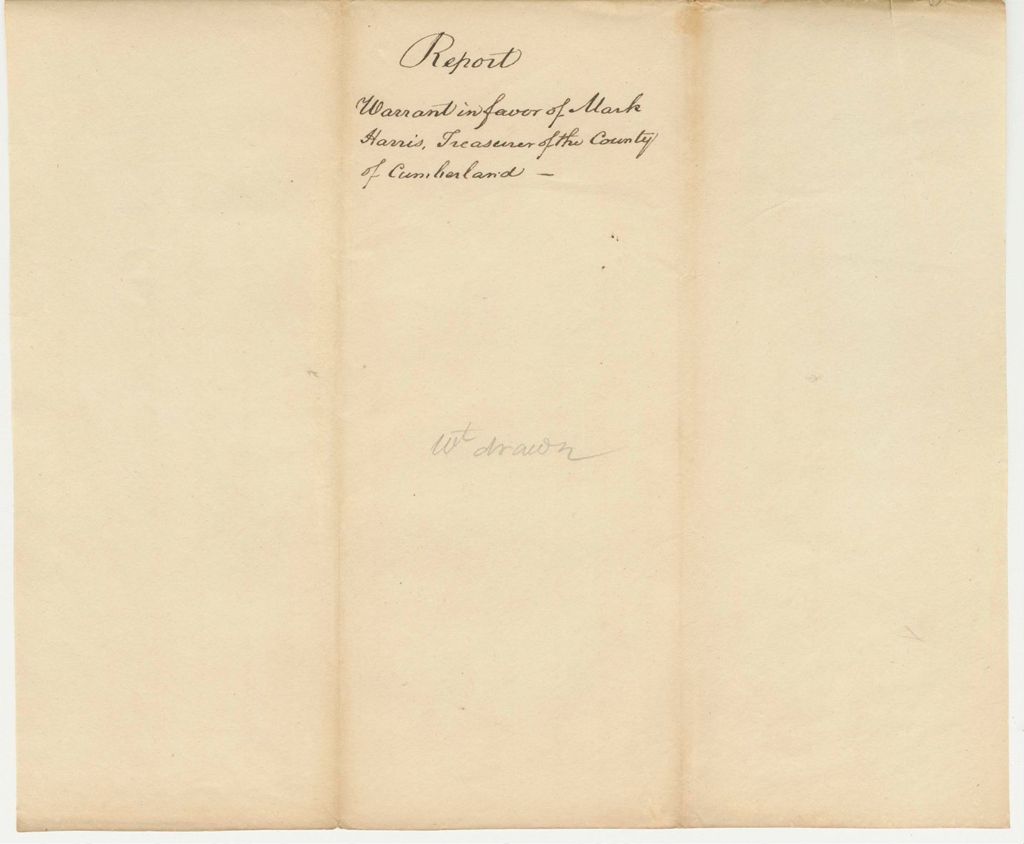 Report
Warrant in favor of Mark
Harris, Treasurer of the County
of Cumberland —
Wt drawn